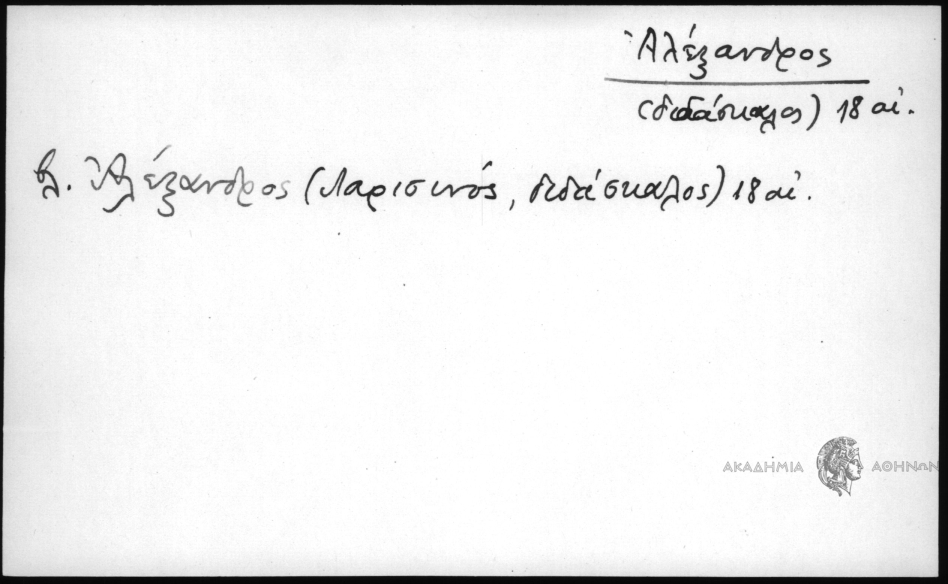 Ἀλέξανδρος
(διδάσκαλος) 18 αἰ.
βλ. Ἀλέξανδρος (Λαρισινός, διδάσκαλος) 18 αἰ.
ΑΚΑΔΗΜΙΑ ΑΘΗΝΩΝ